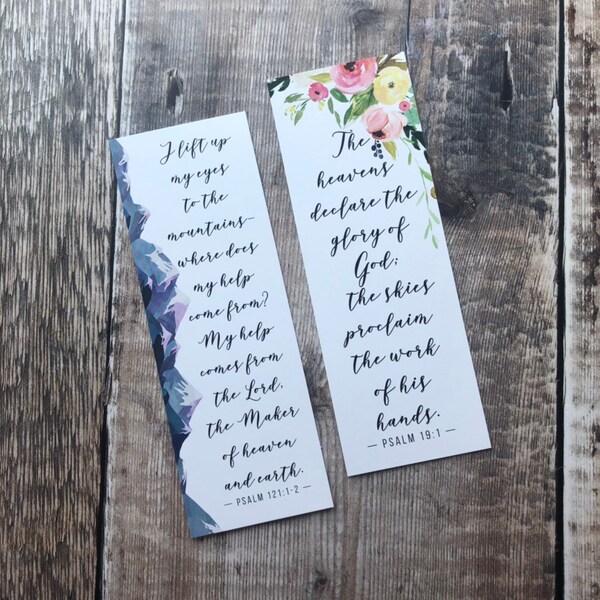 I lift up
my eyes
to the
mountains–
where does
my help
come from?
My help
comes from
the Lord,
the Maker
of heaven
and earth.
— PSALM 121:1-2 —
The
heavens
declare the
glory of
God;
the skies
proclaim
the work
of his
hands.
— PSALM 19:1 —